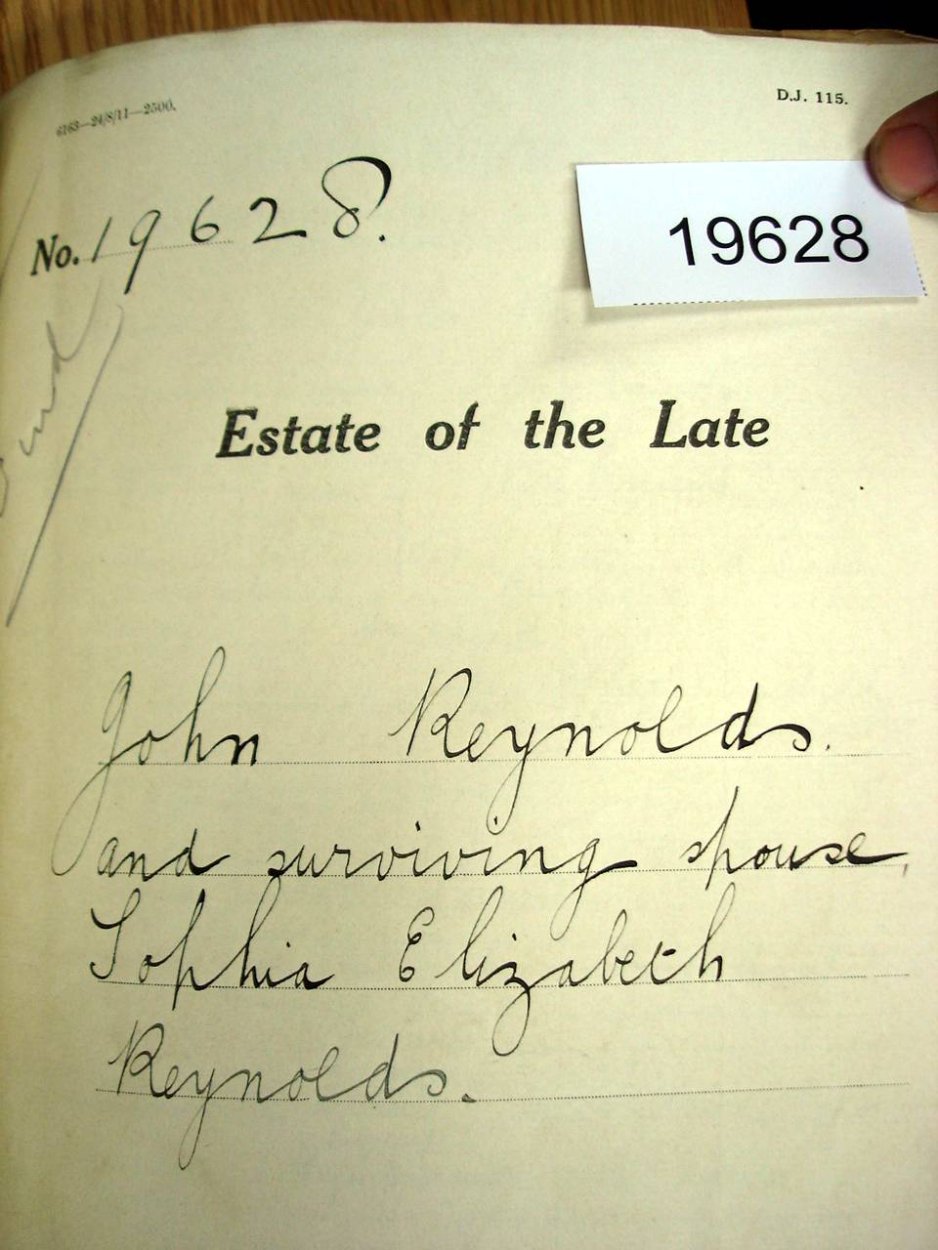 6163—24/8/11—2500.
D.J. 115.
No. 19628.
19628
Estate of the Late
John Reynolds.
and surviving spouse,
Sophia Elizabeth
Reynolds.